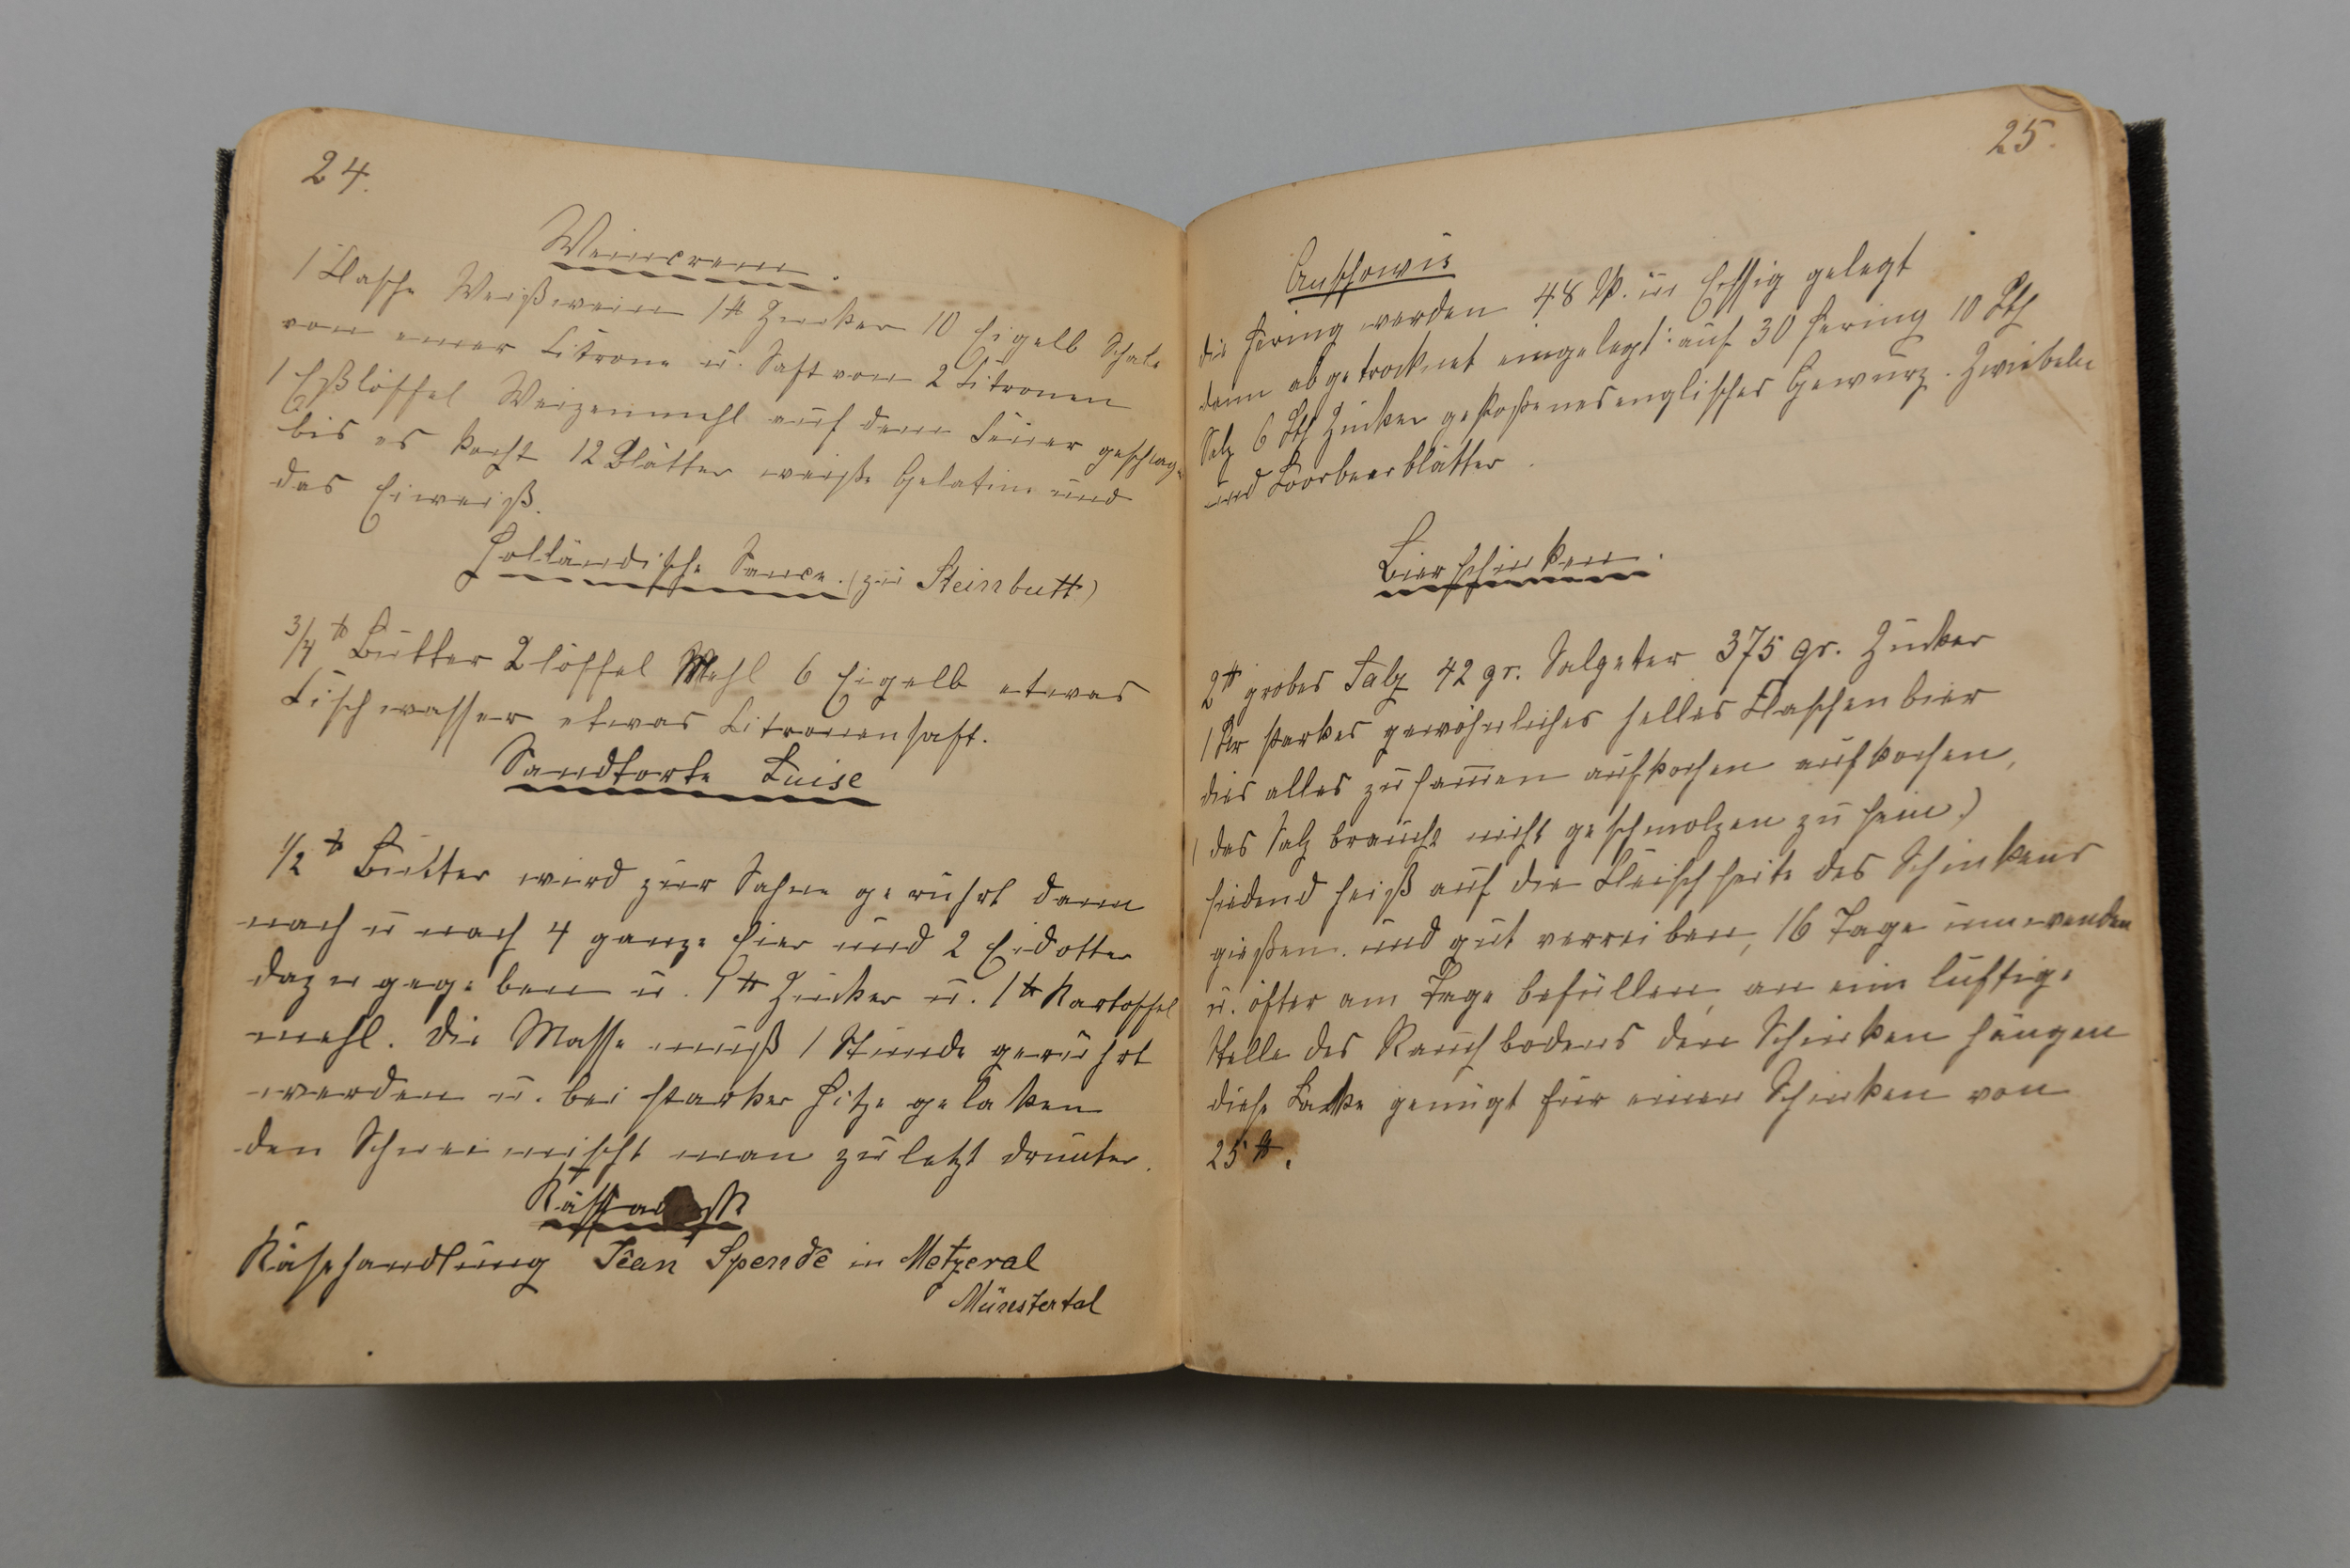 24.
Weincrem.
1 Flasche Weißwein 1 ℔ Zucker 10 Eigelb Schale
von einer Citrone u. Saft von 2 Citronen
1 Eßlöffel Weizenmehl auf dem Feuer geschlag.
bis es kocht 12 Blätter weiße Gelatine und
das Eiweiß.
Holländische Sauce. (zu Steinbutt)
3/4 ℔ Butter 2 löffel Mehl 6 Eigelb etwas
Fischwasser etwas Citronensaft.
Sandtorte Luise
1/2 ℔ Butter wird zur Sahne gerührt dann
nach u nach 4 ganze Eier und 2 Eidotter
dazu gegeben u. 1 ℔ Zucker u. 1 ℔ Kartoffel
mehl. Die Masse muß 1 Stunde gerührt
werden u. bei starker Hitze gebaken
den Schnee mischt man zuletzt drunter.
Käsehandlung Jean Spende in Metzeral
Münstertal
25.
Anschowis
die Hering werden 48 St. in Essig gelegt
dann abgetrocknet eingelegt: auf 30 Hering 10 Lth
Salz 6 Lth Zucker gestoßenes englisches Gewürz. Zwiebeln
und Loorbeerblätter.
Bierschinken.
2 ℔ grobes Salz 42 gr. Salpeter 375 gr. Zucker
1 Ltr starkes gewöhnliches helles Flaschenbier
dies alles zusammen aufkochen aufkochen,
(das Salz braucht nicht geschmolzen zu sein)
siedend heiß auf die Fleischseite des Schinkens
gießen. und gut verreiben, 16 Tage umwenden
u. öfter am Tage befüllen, an eine luftige
Stelle des Rauchbodens den Schinken hängen
diese Lake genügt für einen Schinken von
25 ℔.